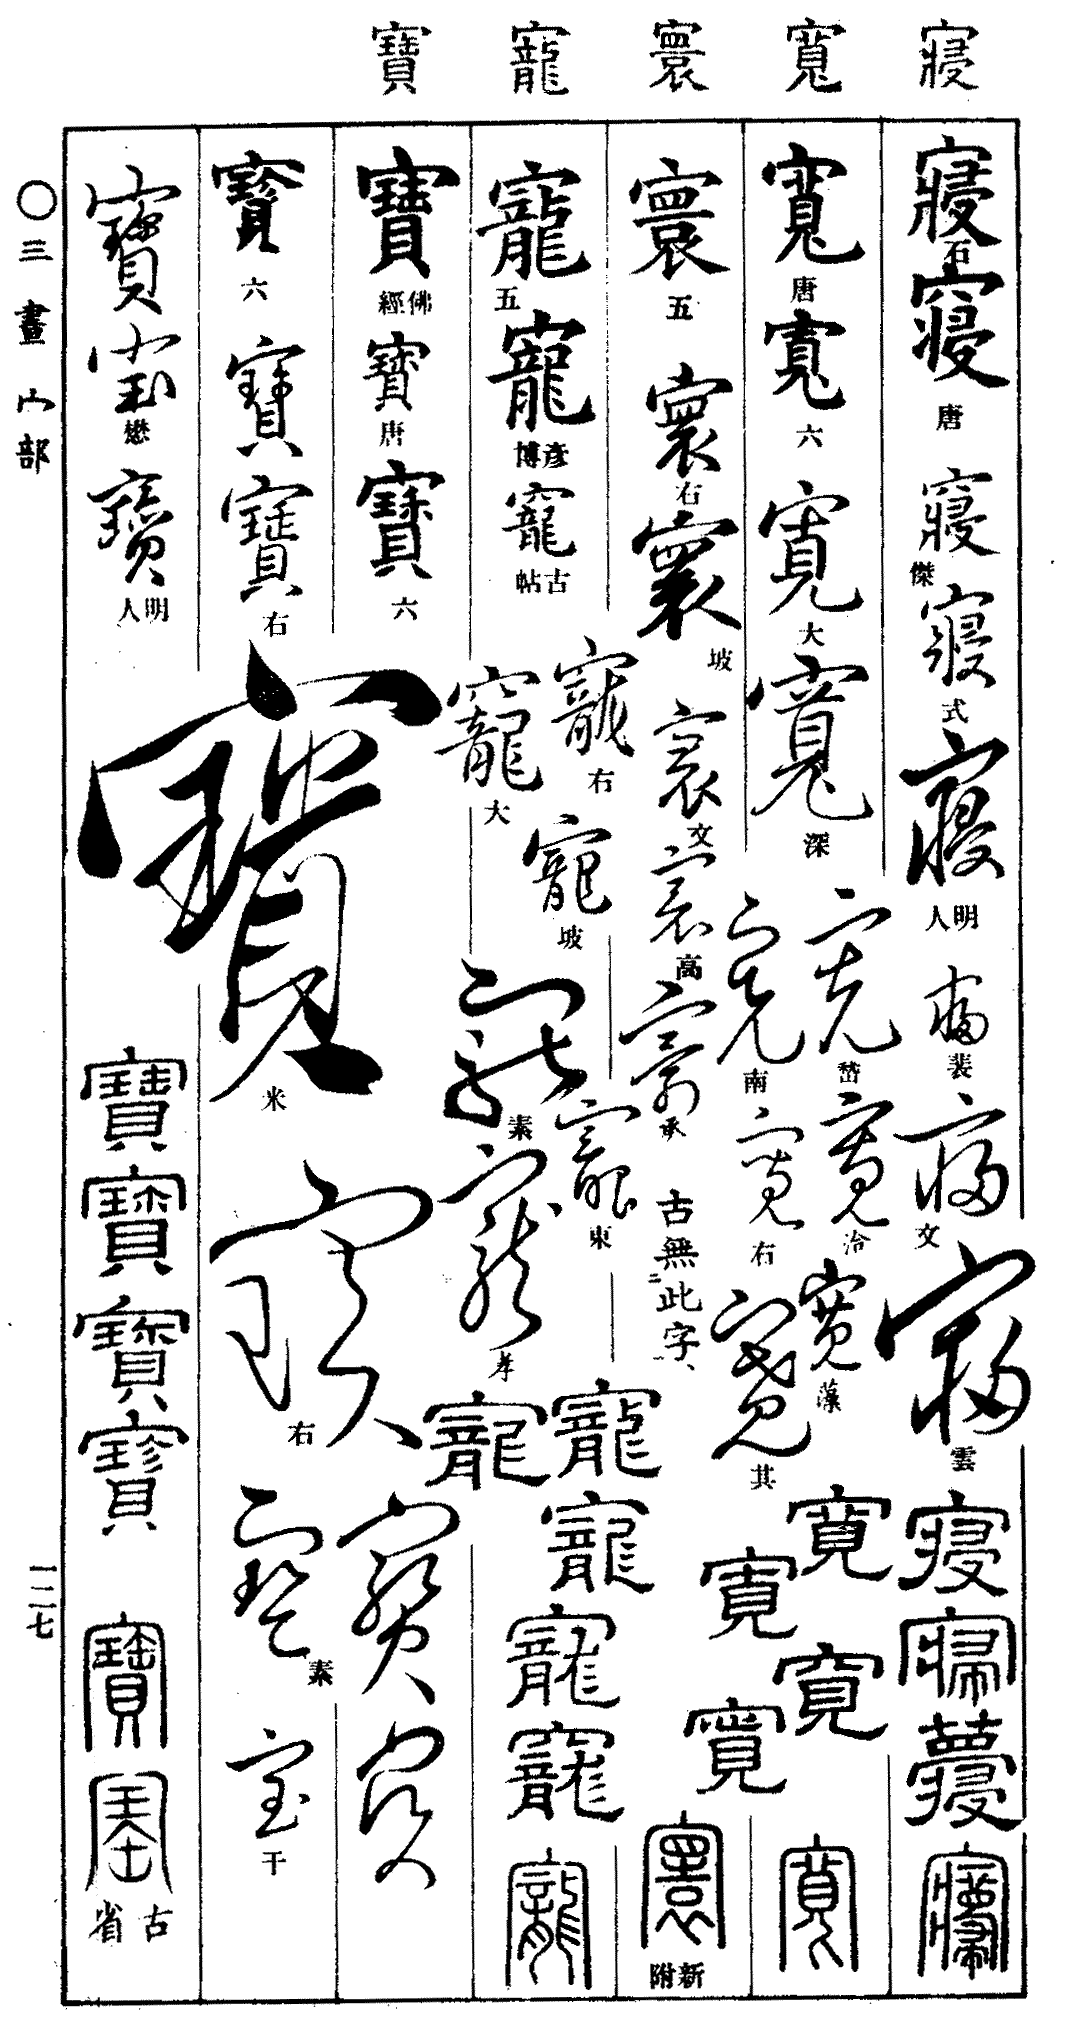 寢 寬 寰 寵 寶
寢 石 寢 唐 寢 傑 寢 式 寢 明人 寢 裴 寢 文 寢 雲 寢 寢 寢 寢
寬 唐 寬 六 寬 大 寬 深 寬 岱 寬 南 寬 泠 寬 右 寬 藻 寬 其 寬 寬 寬 寬 寬
寰 五 寰 右 寰 坡 寰 文 寰 高 寰 承 古無此字 寰 新附
寵 五 寵 彥博 寵 古帖 寵 右 寵 大 寵 坡 寵 素 寵 東 寵 孝 寵 寵 寵 寵 寵 寵
寶 佛經 寶 唐 寶 六
寶 六 寶 寶 右 寶 米 寶 右 寶 寶 素 寶 寶 干
寶 寶 懋 寶 明人 寶 寶 寶 寶 寶 寶 古省
〇三畫 宀部
一二七